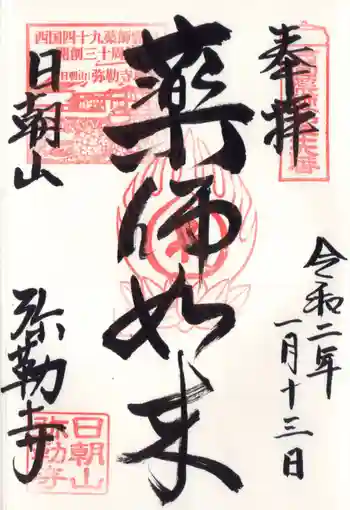 奉拝
令和二年
一月十三日
薬師如来
西国四十九薬師霊
開創三十周
日朝山 弥勒寺
日朝山
弥勒寺
日朝山
弥勒寺